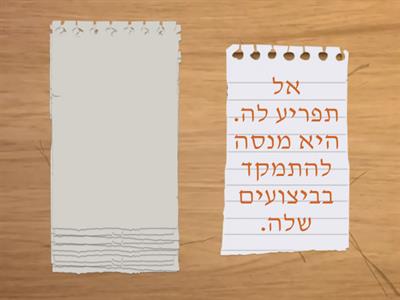 אל
תפריע לה.
היא מנסה
להתמקד
בביצועים
שלה.